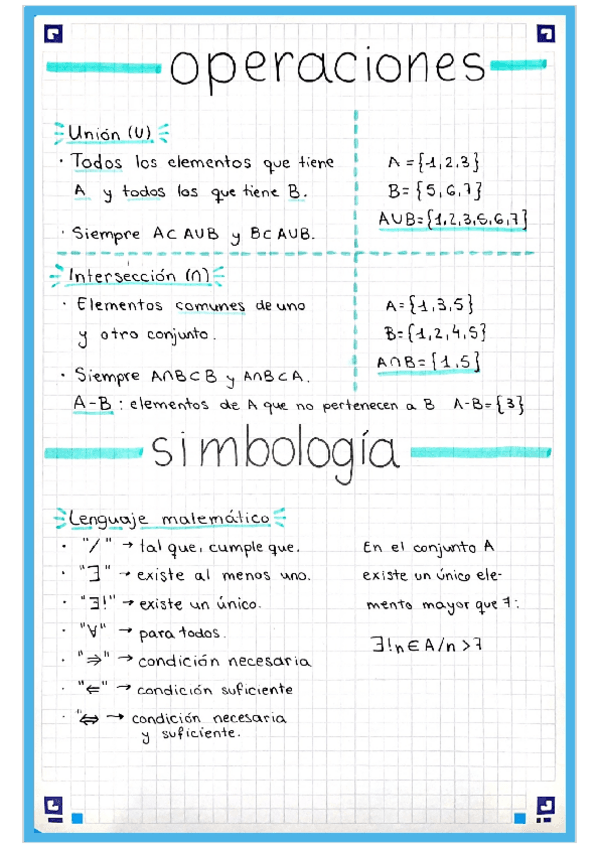 operaciones
Unión (U)
· Todos los elementos que tiene
A y todos los que tiene B.
· Siempre A⊂A∪B y B⊂A∪B.
A={1,2,3}
B={5,6,7}
A∪B={1,2,3,5,6,7}
Intersección (∩)
· Elementos comunes de uno
y otro conjunto.
· Siempre A∩B⊂B y A∩B⊂A.
A={1,3,5}
B={1,2,4,5}
A∩B={1,5}
A-B: elementos de A que no pertenecen a B A-B={3}
simbología
Lenguaje matemático
· "/" → tal que, cumple que.
· "∃" → existe al menos uno.
· "∃!" → existe un único.
· "∀" → para todos.
· "⇒" → condición necesaria
· "⇐" → condición suficiente
· "⇔ → condición necesaria
y suficiente.
En el conjunto A
existe un único ele-
mento mayor que 7:
∃!n∈A/n>7